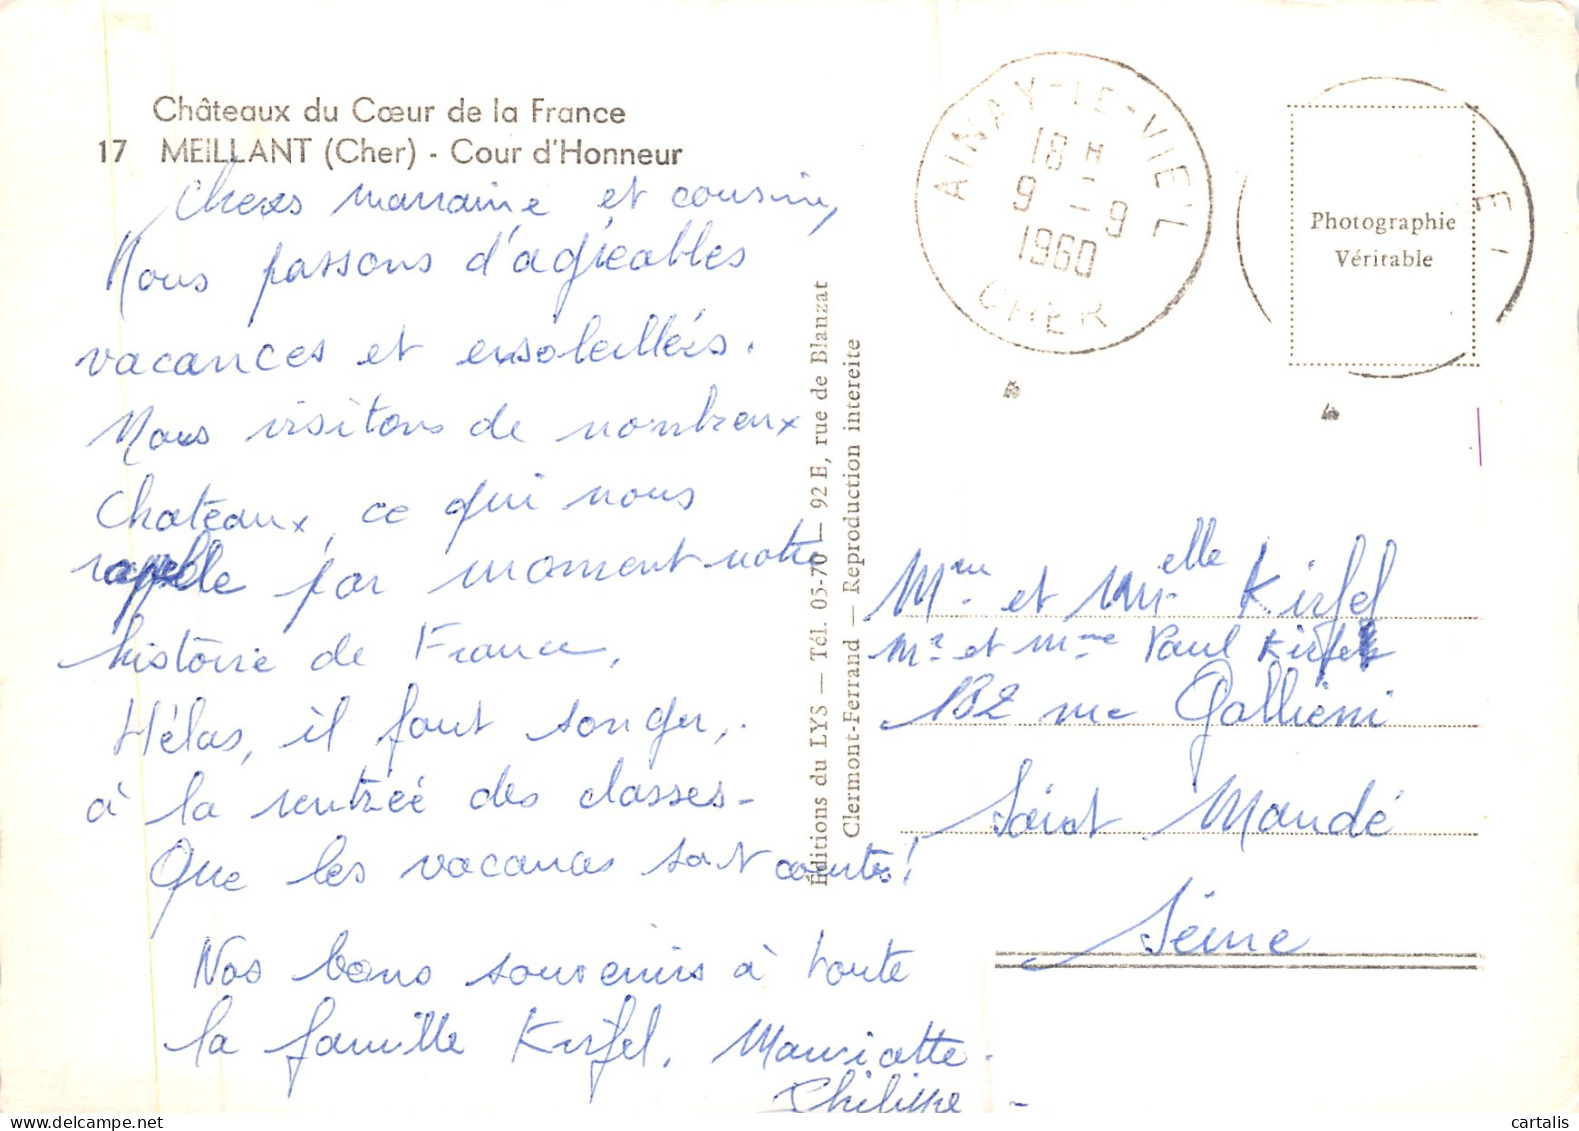 Châteaux du Cœur de la France
17 MEILLANT (Cher) - Cour d'Honneur
Chères marraine et cousine,
Nous passons d'agréables
vacances et ensoleillées.
Nous visitons de nombreux
chateaux, ce qui nous
rappelle par moment notre
histoire de France.
Hélas, il faut songer,
à la rentrée des classes-
Que les vacances sont courtes!
Nos bons souvenirs à toute
la famille Kirfel. Mauricette.
Philippe -
Éditions du LYS — Tél. 05-70 — 92 E, rue de Blanzat
Clermont-Ferrand — Reproduction intereite
AINAY-LE-VIEIL
18 H
9 - 9
1960
CHER
Photographie
Véritable
Mme et Melle Kirfel
Mr et Mme Paul Kirfel
182 rue Galliéni
Saint Mandé
Seine
cartalis